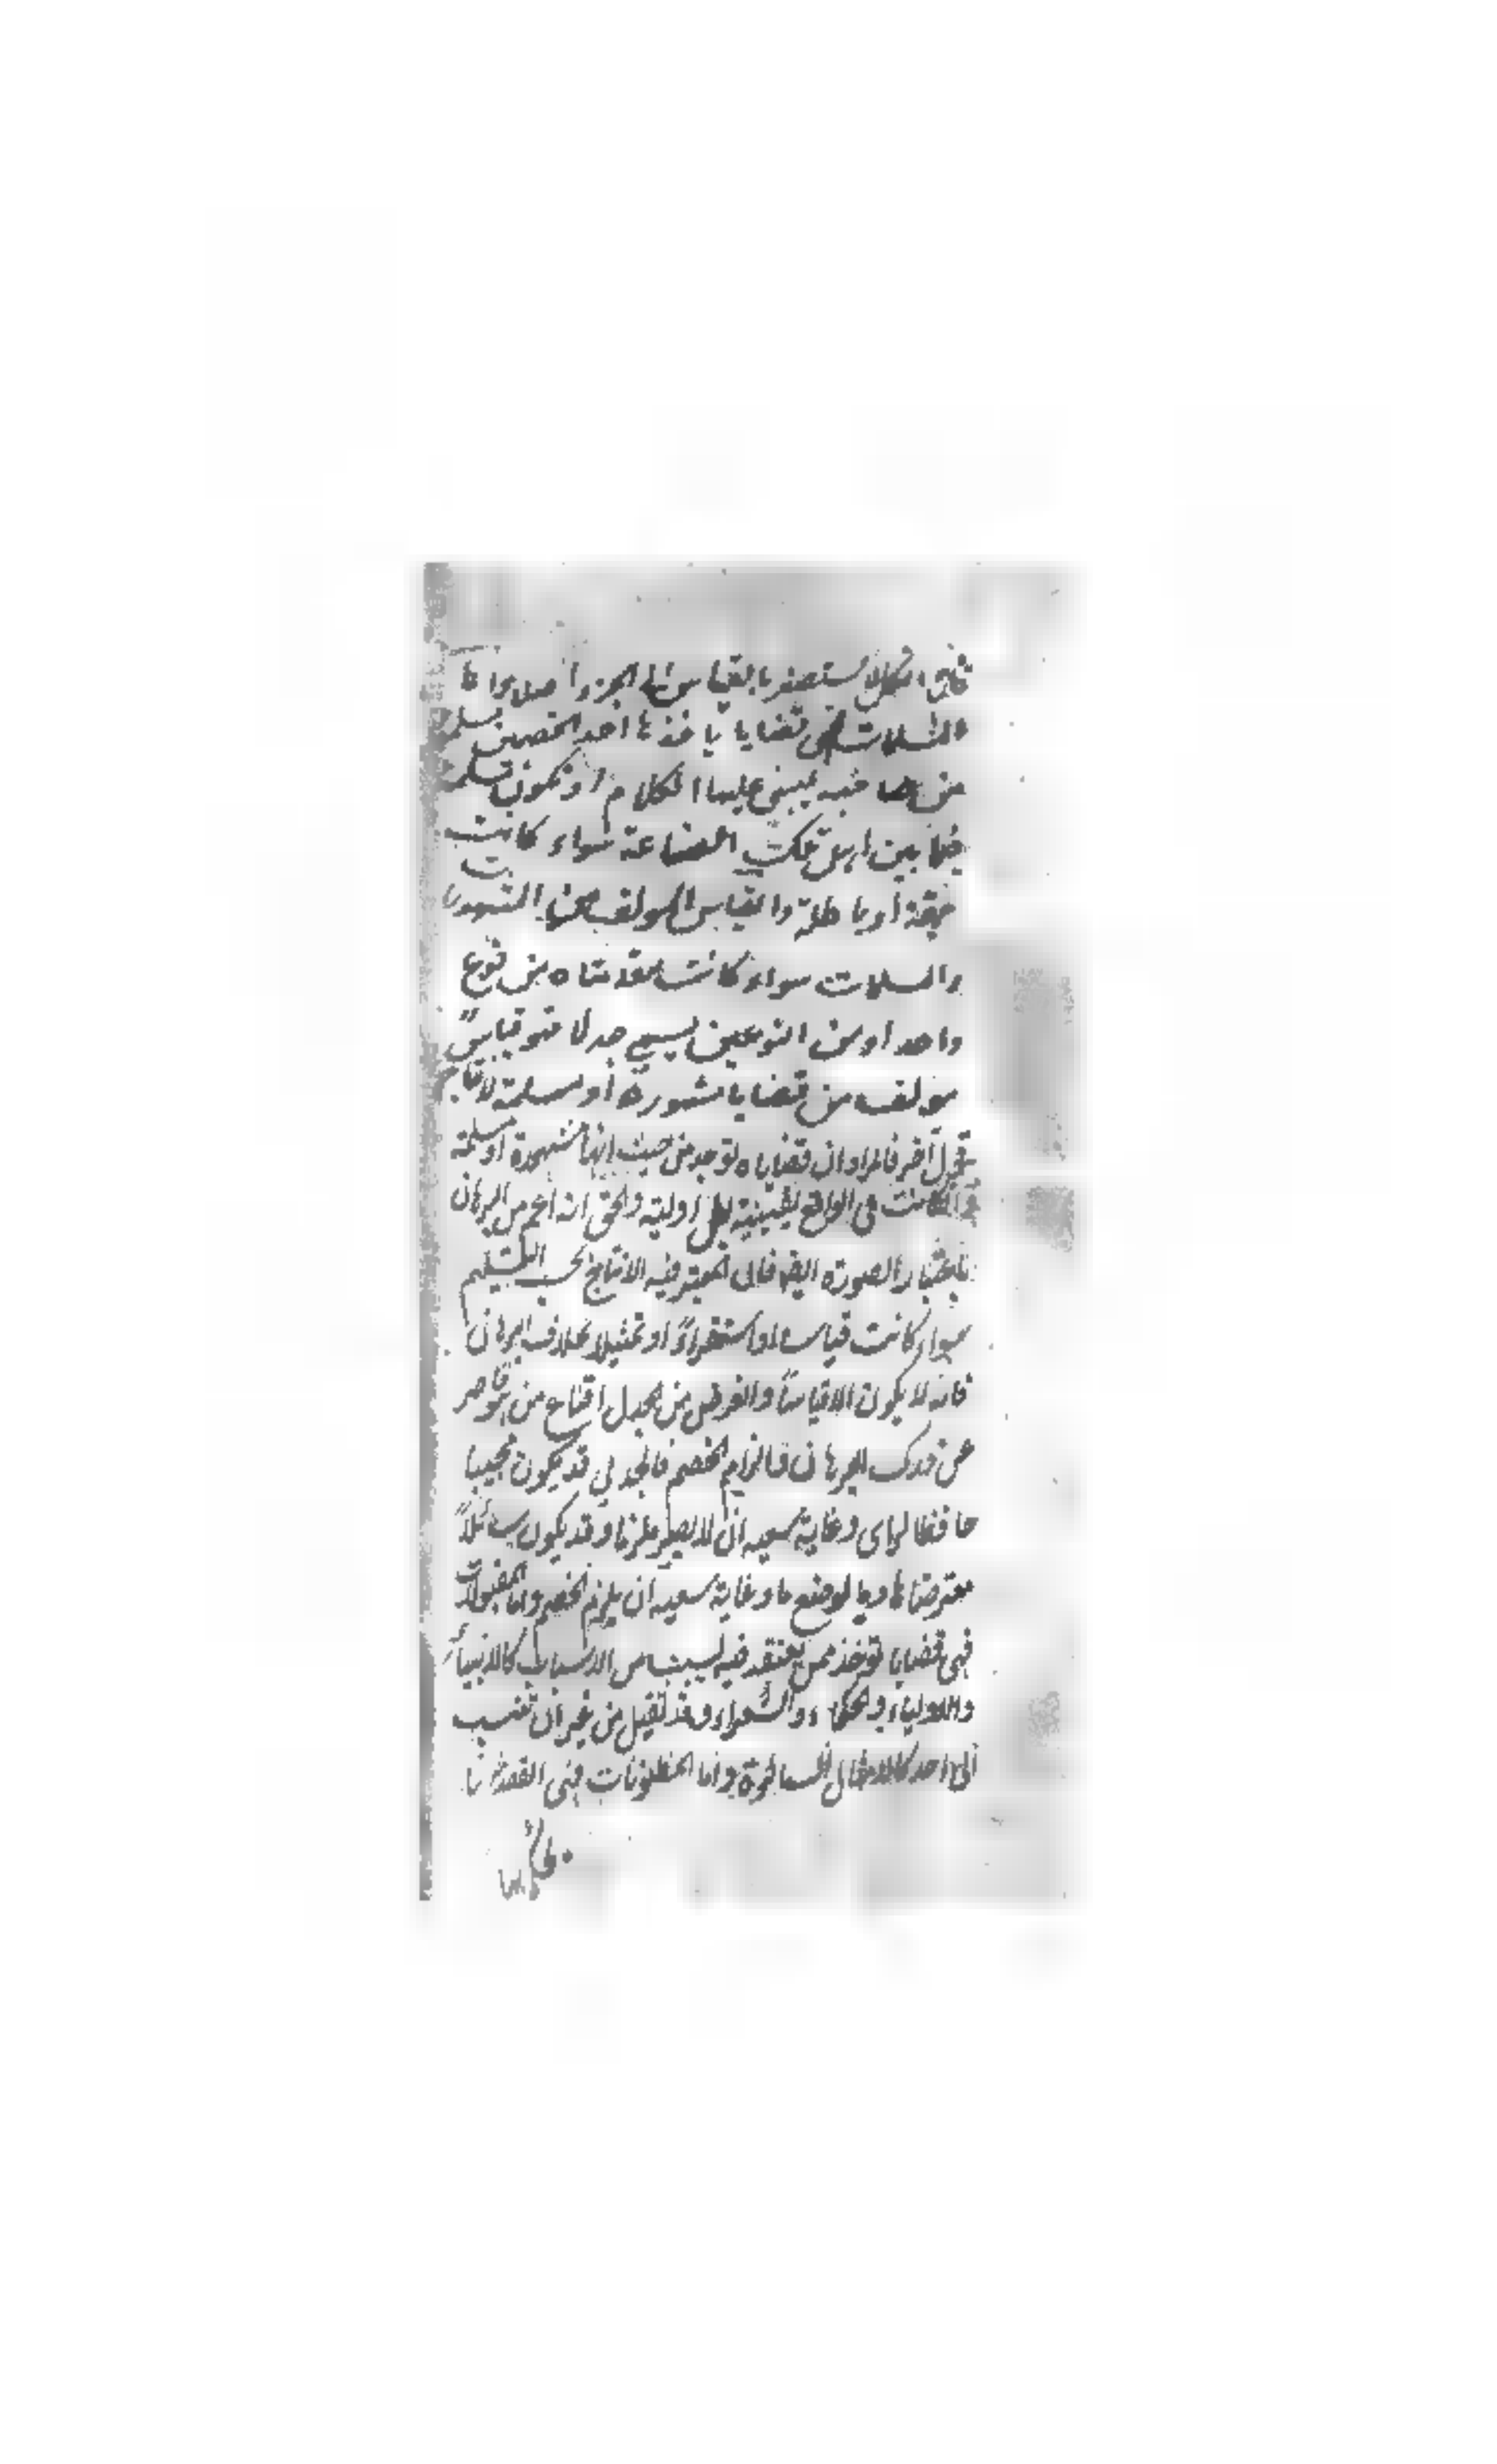 فان الكل لا يستصغر بالقياس الى الجزء اصلا واما
المسلمات فهى قضايا ياخذها احد الخصمين مسلمة
من صاحبه ليبنى عليها الكلام او تكون مسلمة
فيما بين اهل تلك الصناعة سواء كانت
حقة او باطلة والقياس المولف من المشهورات
والمسلمات سواء كانت مقدمتاه من نوع
واحد او من النوعين يسمى جدلا فهو قياس
مولف من قضايا مشهورة او مسلمة لانتاج
قول آخر فالمراد ان قضاياه توخذ من حيث انها مشهورة او مسلمة
وان كانت فى الواقع يقينية بل اولية والحق انه اعم من البرهان
باعتبار الصورة ايضا فان المعتبر فيه الانتاج بحسب التسليم
سواء كانت قياسا او استقراءً او تمثيلا بخلاف البرهان
فانه لا يكون الا قياسًا والغرض من الجدل اقناع من هو قاصر
عن درك البرهان والزام الخصم فالجدلي قد يكون مجيبا
حافظا لراى وغاية سعيه ان لا يصير ملزما وقد يكون سائلاً
معترضا هادما لوضع ما وغاية سعيه ان يلزم الخصم واما المقبولات
فهى قضايا توخذ ممن يعتقد فيه لسبب من الاسباب كالانبياء
والاولياء والحكماء والشعراء وقد تقبل من غير ان تنسب
الى احد كالامثال السائرة واما المظنونات فهى القضايا